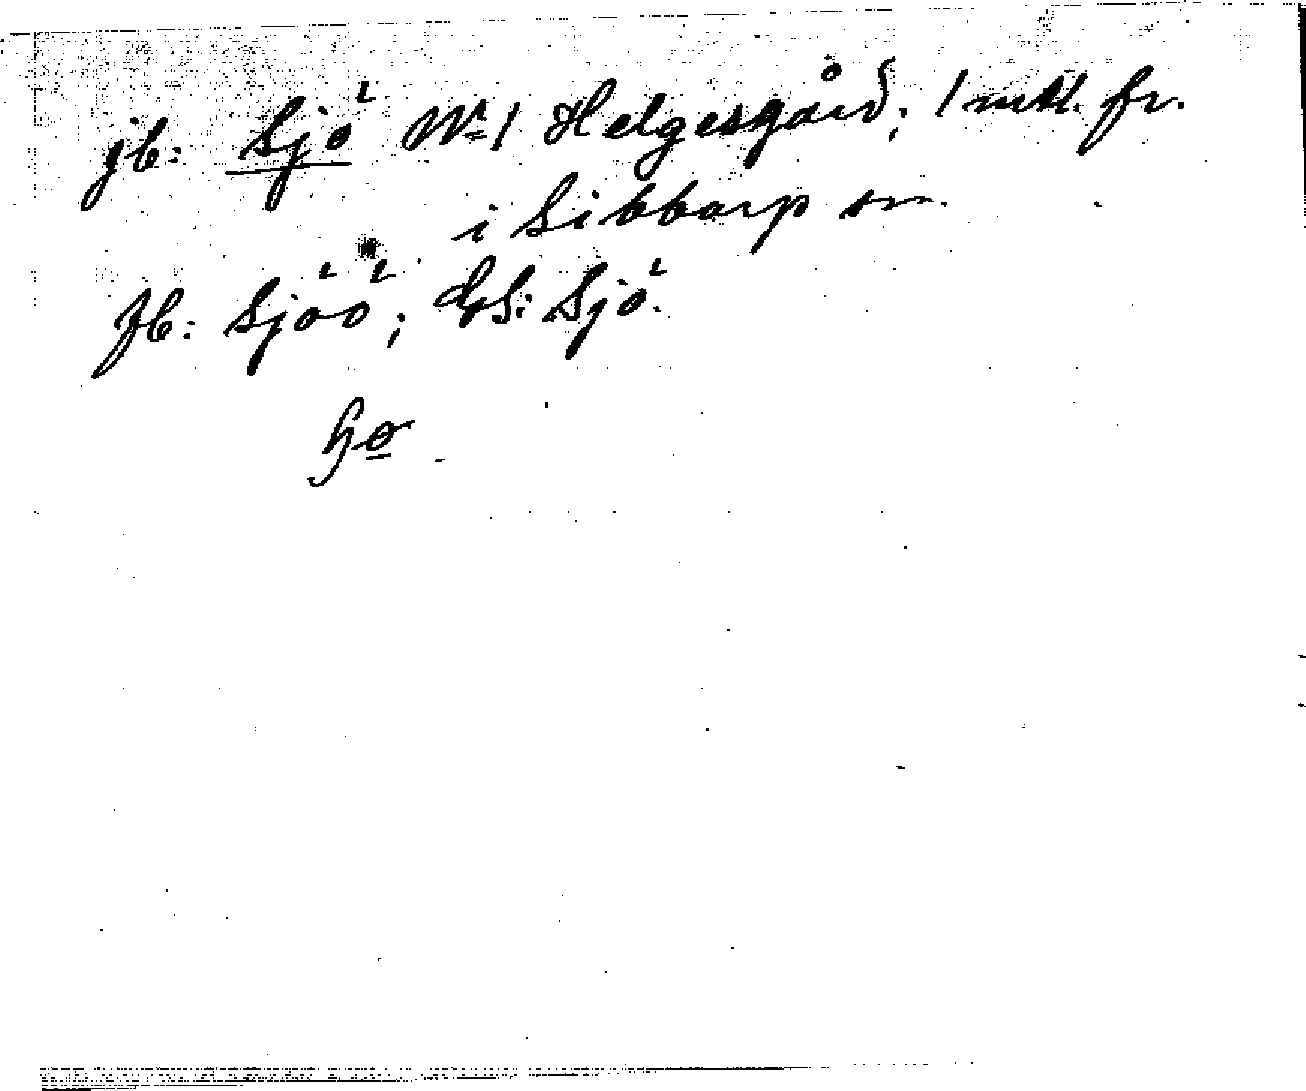 jb: Sjö Nr 1 Helgesgård; 1 mtl. fr.
i Sibbarp sn.
Jb: Sjöö; GS: Sjö.